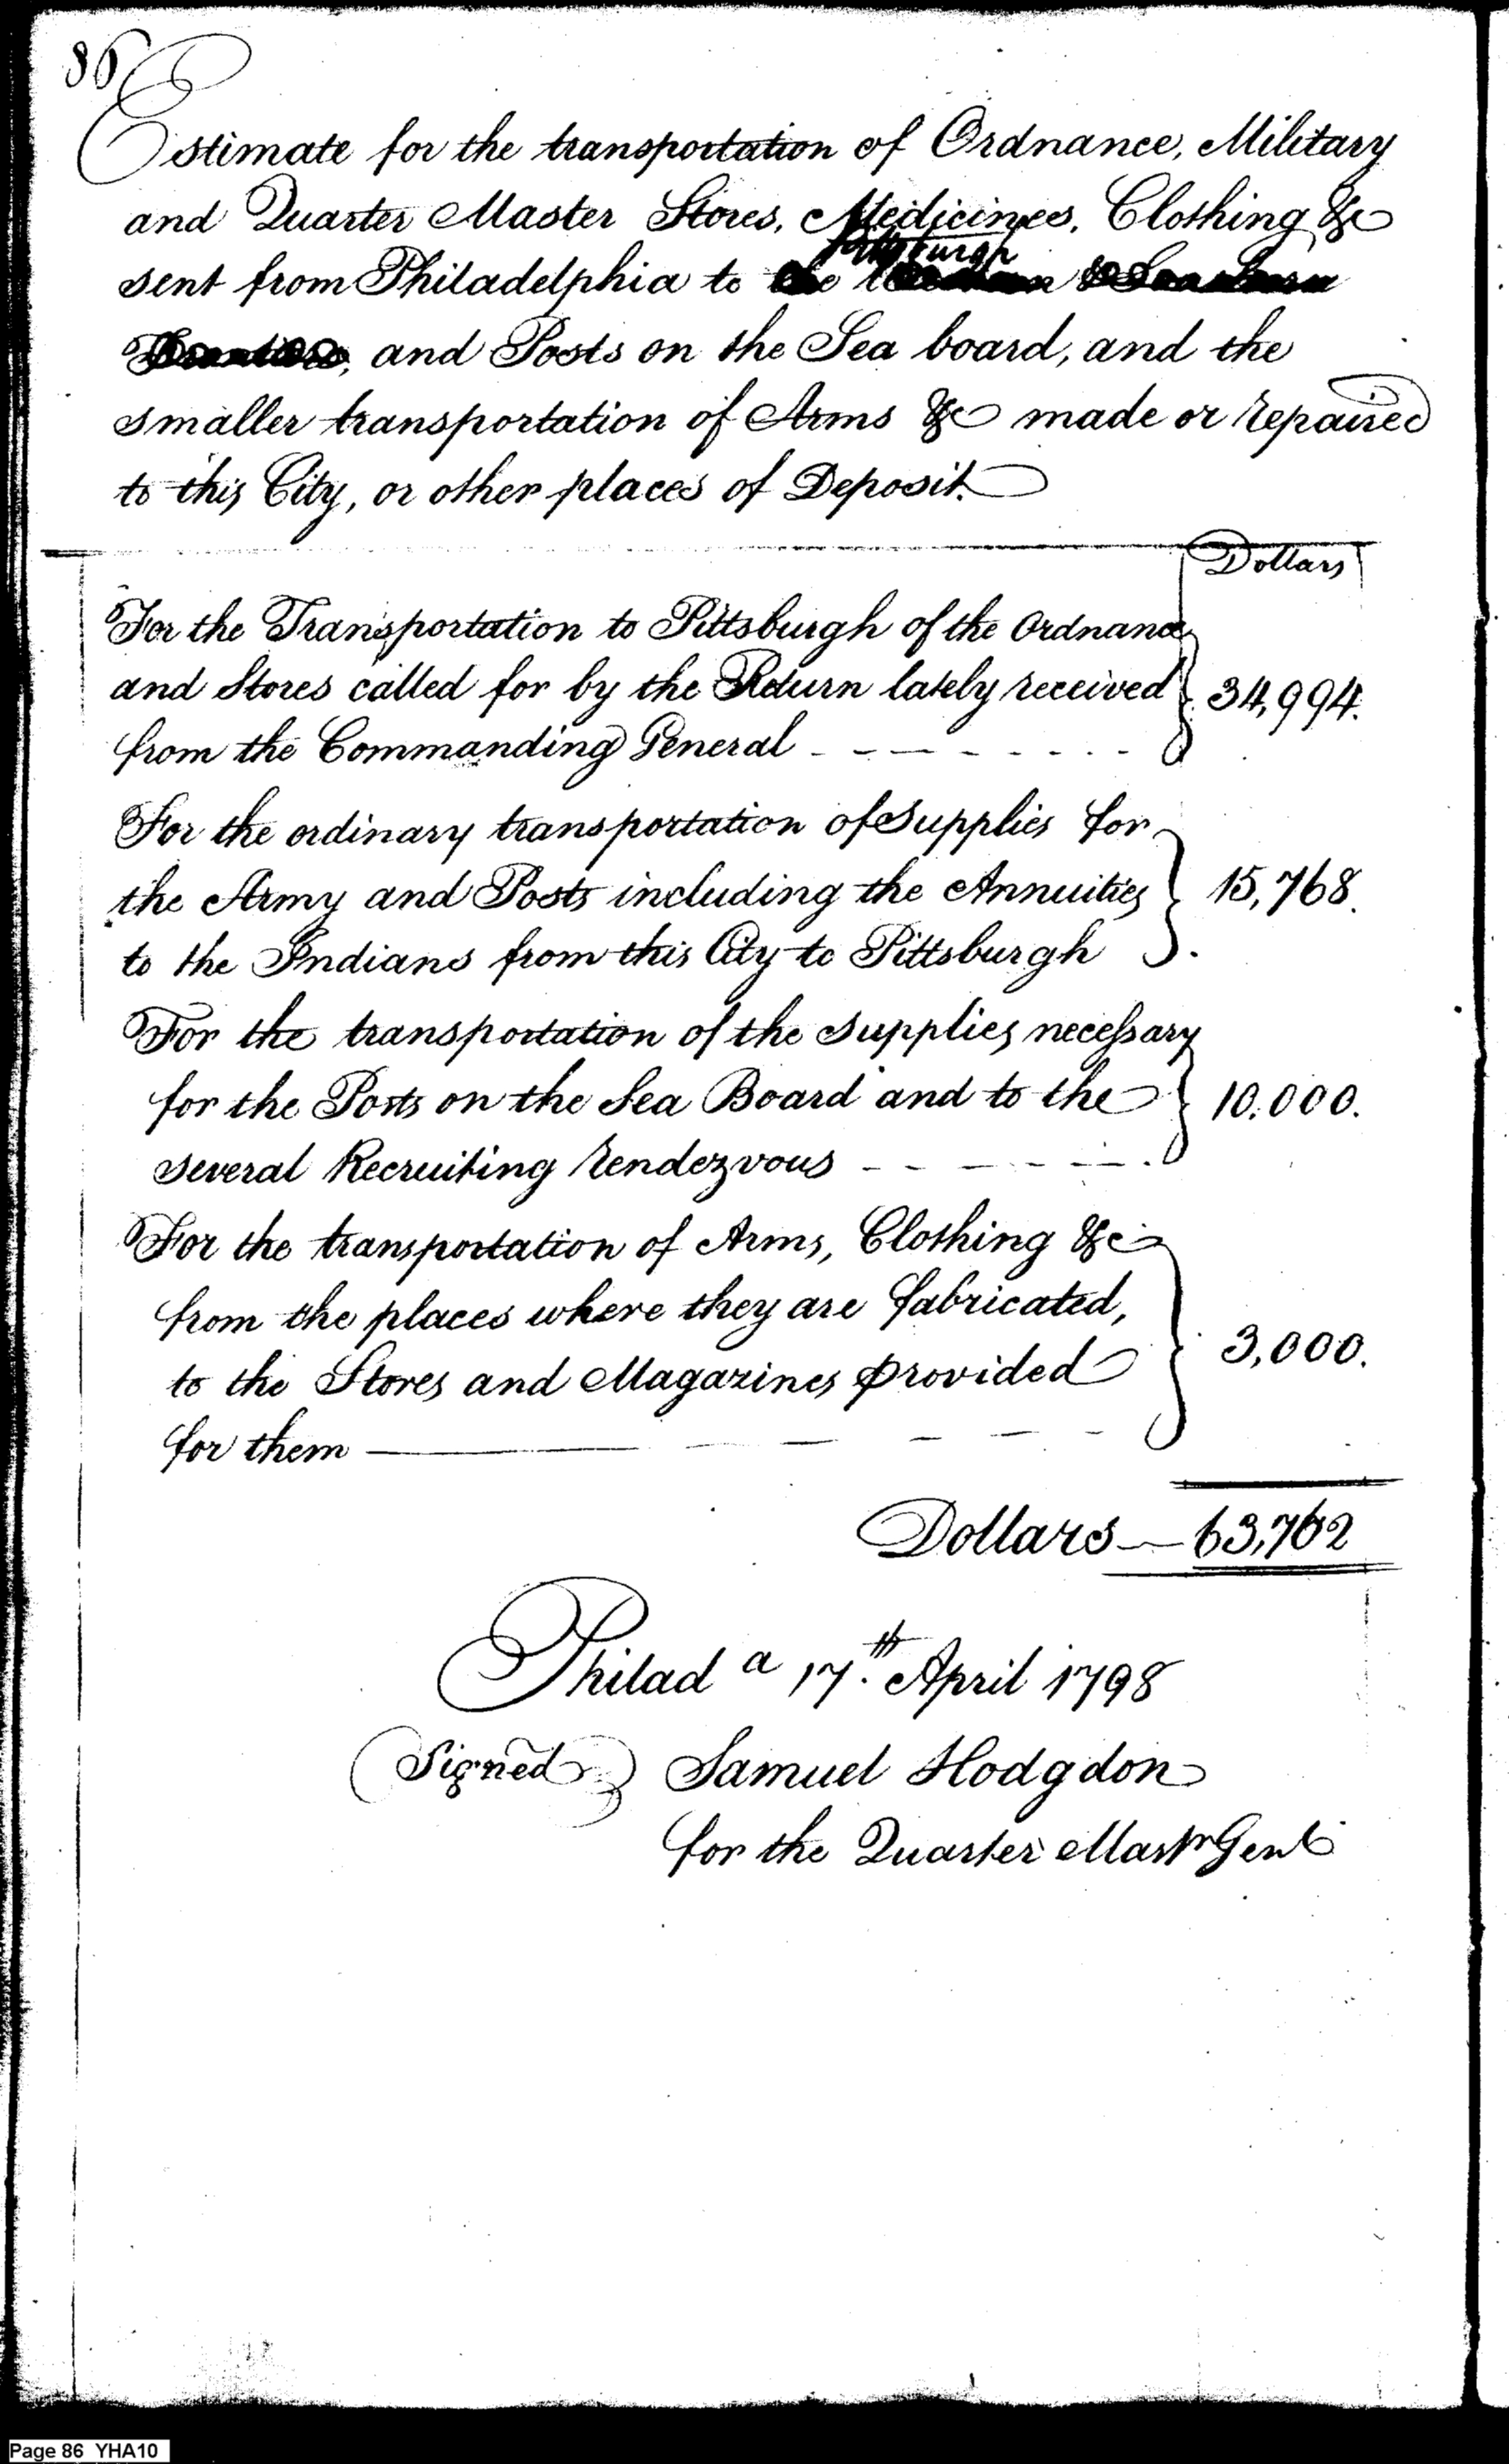 86
Estimate for the transportation of Ordnance, Military
and Quarter Master Stores, Medicines, Clothing &c
Pittsburgh
sent from Philadelphia to
and Posts on the Sea board, and the
smaller transportation of Arms &c made or repaired
to this City, or other places of Deposit.
Dollars
For the Transportation to Pittsburgh of the Ordnance
and Stores called for by the Return lately received
34,994.
from the Commanding General
For the ordinary transportation of Supplies for
the Army and Posts including the Annuities
15,768.
to the Indians from this City to Pittsburgh
For the transportation of the supplies necessary
for the Posts on the Sea Board and to the
10.000.
several Recruiting rendezvous
For the transportation of Arms, Clothing &c
from the places where they are fabricated,
3,000.
to the Stores and Magazines provided
for them
Dollars — 63,762
Philad a 17th April 1798
(Signed) Samuel Hodgdon
for the Quarter Mastr Genl
Page 86 YHA10